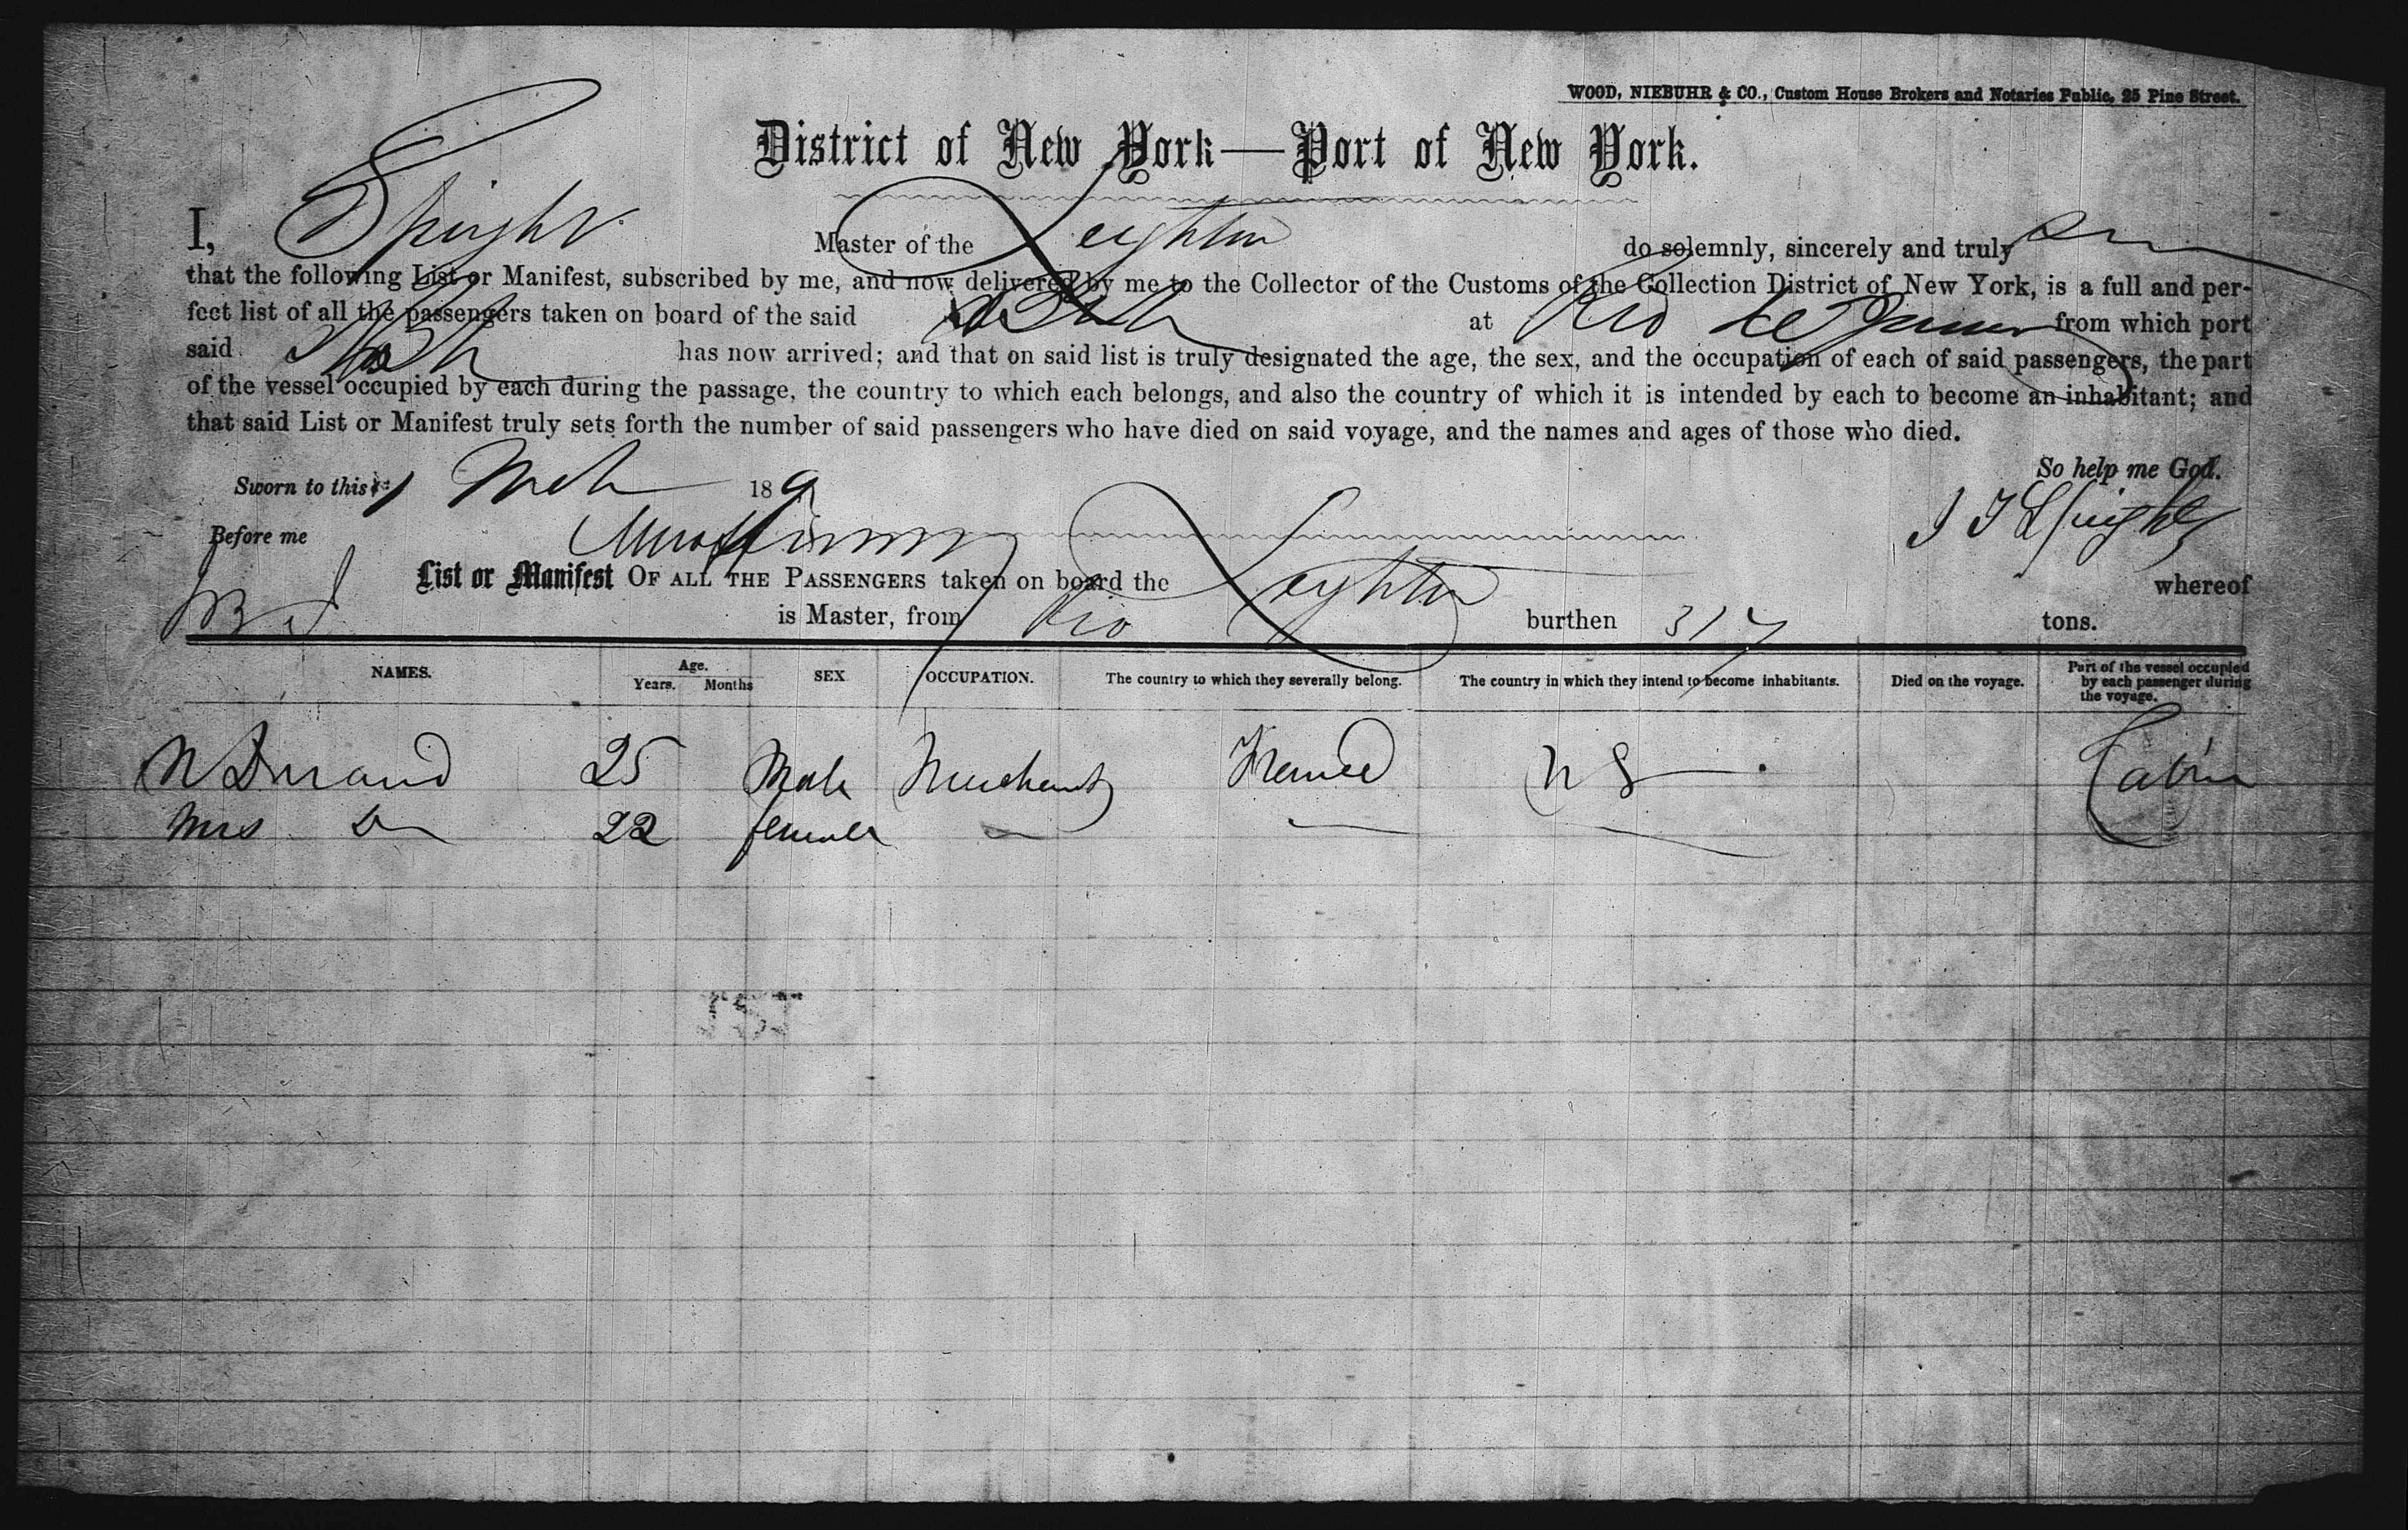 WOOD, NIEBUHR & CO., Custom House Brokers and Notaries Public, 25 Pine Street.
District of New York—Port of New York.
I, Speight Master of the Leighton do solemnly, sincerely and truly
that the following List or Manifest, subscribed by me, and now delivered by me to the Collector of the Customs of the Collection District of New York, is a full and per-
fect list of all the passengers taken on board of the said at Rio de Janeiro from which port
said has now arrived; and that on said list is truly designated the age, the sex, and the occupation of each of said passengers, the part
of the vessel occupied by each during the passage, the country to which each belongs, and also the country of which it is intended by each to become an inhabitant; and
that said List or Manifest truly sets forth the number of said passengers who have died on said voyage, and the names and ages of those who died.
So help me God.
Sworn to this 1 Mch 18 9
J T Speight
Before me
List or Manifest OF ALL THE PASSENGERS taken on board the Leighton whereof
is Master, from Rio burthen 317 tons.
NAMES. Age. Years. Months SEX OCCUPATION. The country to which they severally belong. The country in which they intend to become inhabitants. Died on the voyage. Part of the vessel occupied by each passenger during the voyage.
N Durand 25 Male Merchant France U S Cabin
Mrs Do 22 female